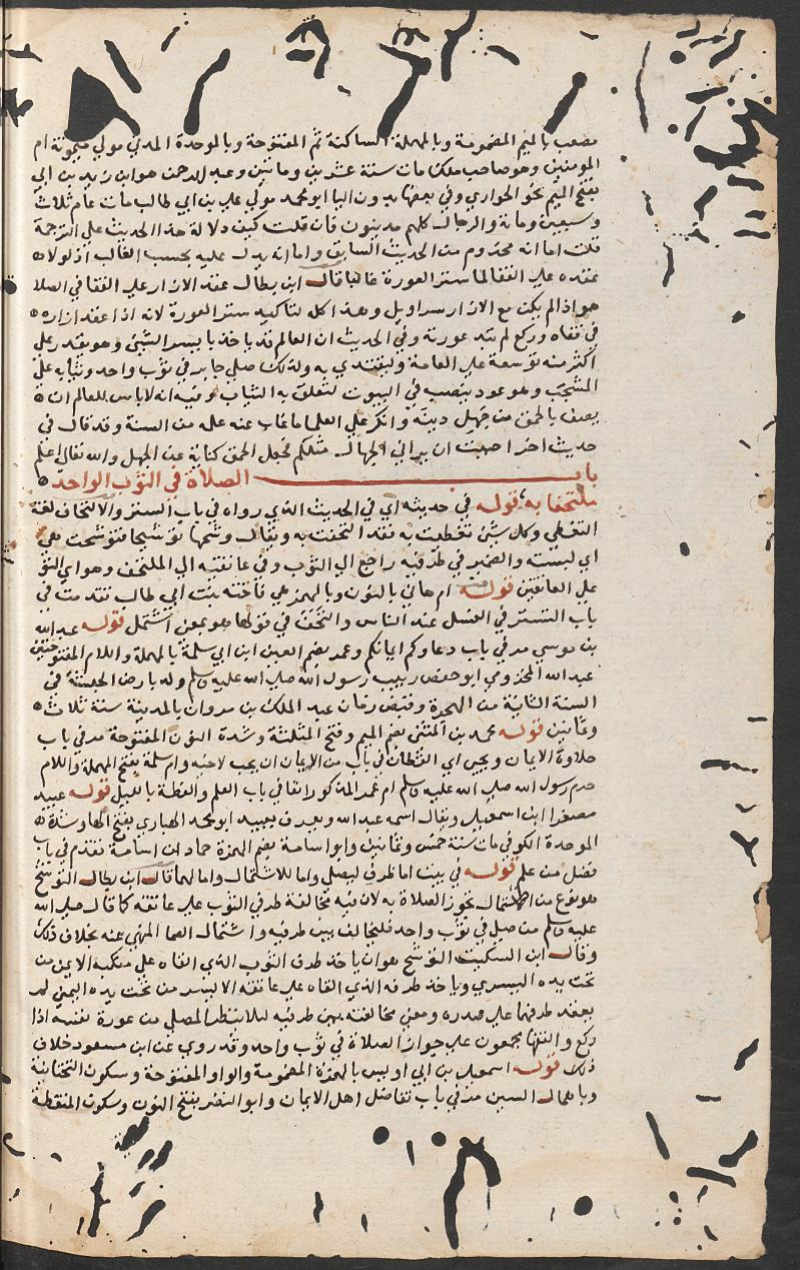 مصعب بالميم المضمومة وبالمهملة الساكنة ثم المفتوحة وبالموحدة المدني مولي ميمونة ام
المومنين وهو صاحب ملك مات سنة عشرين ومائتين وعبد الرحمن هو ابن زيد بن ابي
بفتح الميم نحو الجواري وفي بعضها بدون اليا ابو محمد مولي علي بن ابي طالب مات عام ثلاث
وسبعين ومائة والرجال كلهم مدنيون فان قلت كيف دلالة هذا الحديث علي الترجمة
قلت اما انه مخدوم من الحديث السابق واما انه يدل عليه بحسب الغالب اذ لولا
عقده علي القفا لما ستر العورة غالبا قال ابن بطال عقد الازار علي القفا في الصلا
هو اذا لم يكن مع الازار سراويل وهذا كله لتاكيد ستر العورة لانه اذا عقد ازاره
في قفاه وركع لم تبد عورته وفي الحديث ان العالم قد ياخذ بايسر الشي وهو يقدر علي
اكثر منه توسعة علي العامة وليقتدي به ولذلك صلي جابر في ثوب واحد وثيابه علي
المشجب وهو عود ينصب في البيوت لتعلق به الثياب وفيه انه لا باس للعالم ان
يصف بالحمق من جهل دينه وانكر علي العلما ما غاب عنه علمه من السنة وقد قال في
حديث اخر احببت ان يراني الجهال مثلكم فجعل الحمق كناية عن الجهل والله تعالي اعلم
باب الصلاة في الثوب الواحد
ملتحفا به قوله في حديثه اي في الحديث الذي رواه في باب الستر والالتحاف لغة
التغطي وكل شي تغطيت به فقد التحفت به ويقال وشحها توشيحا فتوشحت هي
اي لبسته والضمير في طرفيه راجع الي الثوب وفي عاتقيه الي الملتحف وهو اي الثو
علي العاتقين قوله ام هاني بالنون وبالهمز هي فاختة بنت ابي طالب تقدمت في
باب التستر في الغسل عند الناس والتحف في قولها هو بمعني اشتمل قوله عبد الله
بن موسي مر في باب دعاوكم ايمانكم وعمر بضم العين ابن ابي سلمة بالمهملة واللام المفتوحتين
عبد الله المخزومي ابو حفص ربيب رسول الله صلي الله عليه وسلم ولد بارض الحبشة في
السنة الثانية من الهجرة وقبض زمان عبد الملك بن مروان بالمدينة سنة ثلاث
وثمانين قوله محمد بن المثني بضم الميم وفتح المثلثة وشدة النون المفتوحة مر في باب
حلاوة الايمان ويحيي اي القطان في باب من الايمان ان يحب لاخيه وام سلمة بفتح المهملة واللام
حرم رسول الله صلي الله عليه وسلم ام عمر المذكور انفا في باب العلم والعظة بالليل قوله عبيد
مصغرا ابن اسمعيل ويقال اسمه عبد الله ويعرف بعبيد ابو محمد الهباري بفتح الها وشدة
الموحدة الكوفي مات سنة خمس ومائتين وابو اسامة بضم الهمزة حماد ابن اسامة تقدم في باب
فضل من علم قوله في بيت اما ظرف ليصلي واما للاشتمال واما لهما قال ابن بطال التوشح
هو نوع من الاشتمال تجوز الصلاة به لان فيه مخالفة طرفي الثوب علي عاتقه كما قال صلي الله
عليه وسلم من صلي في ثوب واحد فليخالف بين طرفيه واشتمال الصما المنهي عنه بخلاف ذلك
وقال ابن السكيت التوشح هو ان ياخذ طرف الثوب الذي القاه علي منكبه الايمن من
تحت يده اليسري وياخذ طرفه الذي القاه علي عاتقه الايسر من تحت يده اليمني ثم
يعقد طرفهما علي صدره ومعني مخالفته بين طرفيه ليلا ينظر المصلي من عورة نفسه اذا
ركع والفقها مجمعون علي جواز الصلاة في ثوب واحد وقد روي عن ابن مسعود خلاف
ذلك قوله اسمعيل بن ابي اويس بالهمزة المضمومة والواو المفتوحة وسكون التحتانية
وباهمال السين مر في باب تفاضل اهل الايمان وابو النضر بفتح النون وسكون المنقطة